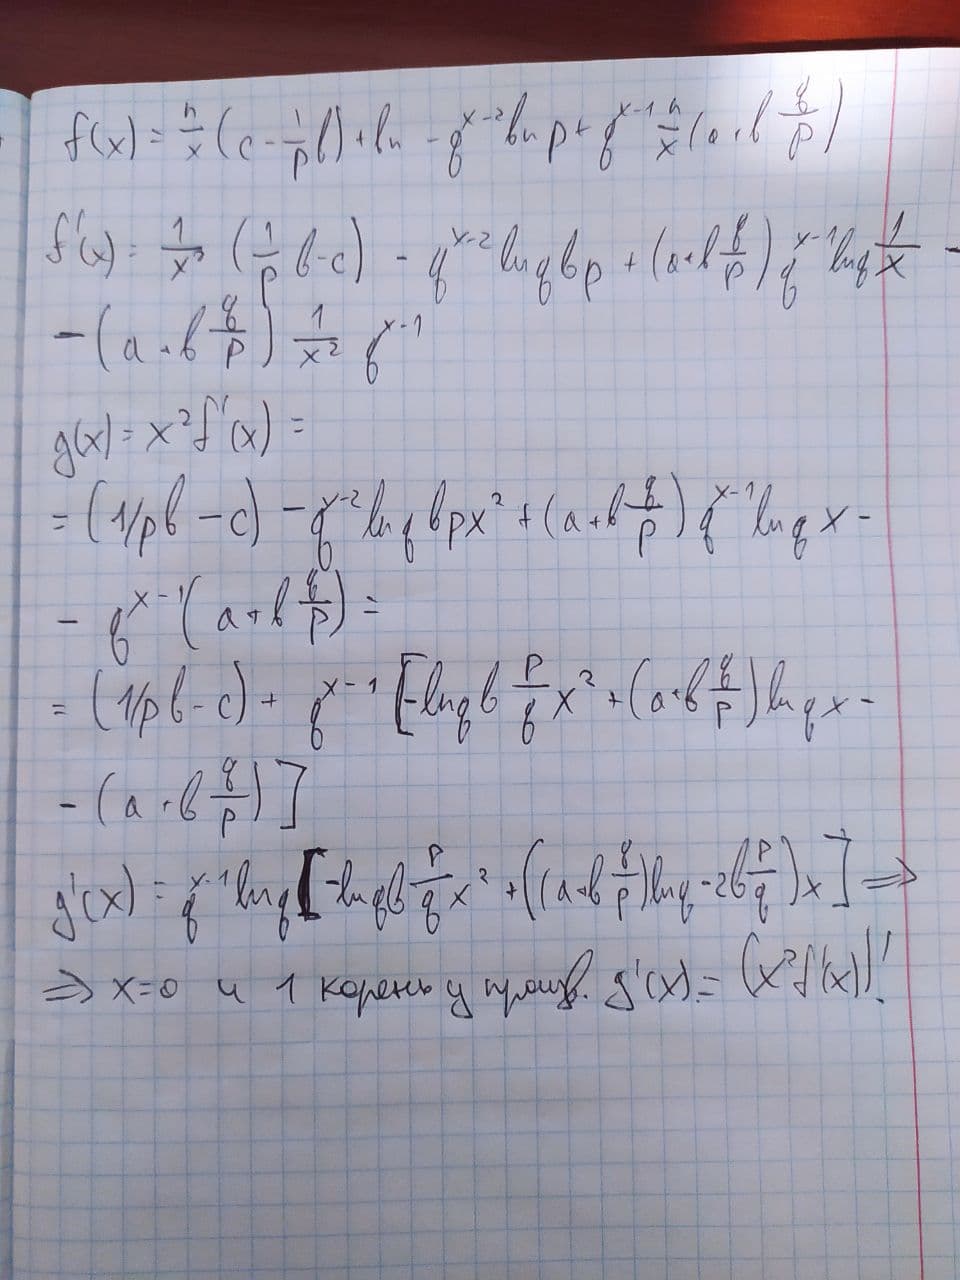 f(x) = n/x (c - 1/p в) + вn - q^(x-2) вn p + q^(x-1) n/x (a + в q/p)
f'(x) = 1/x² (1/p в - c) - q^(x-2) ln q в p + (a + в q/p) q^(x-1) ln q 1/x -
- (a + в q/p) 1/x² q^(x-1)
g(x) = x² f'(x) =
= (1/p в - c) - q^(x-2) ln q в p x² + (a + в q/p) q^(x-1) ln q x -
- q^(x-1) (a + в q/p) =
= (1/p в - c) + q^(x-1) [-ln q в p/q x² + (a + в q/p) ln q x -
- (a + в q/p)]
g'(x) = q^(x-1) ln q [-ln q в p/q x² + ((a + в q/p) ln q - 2в p/q) x] ⇒
⇒ x=0 и 1 корень у произв. g'(x) = (x² f'(x))'!